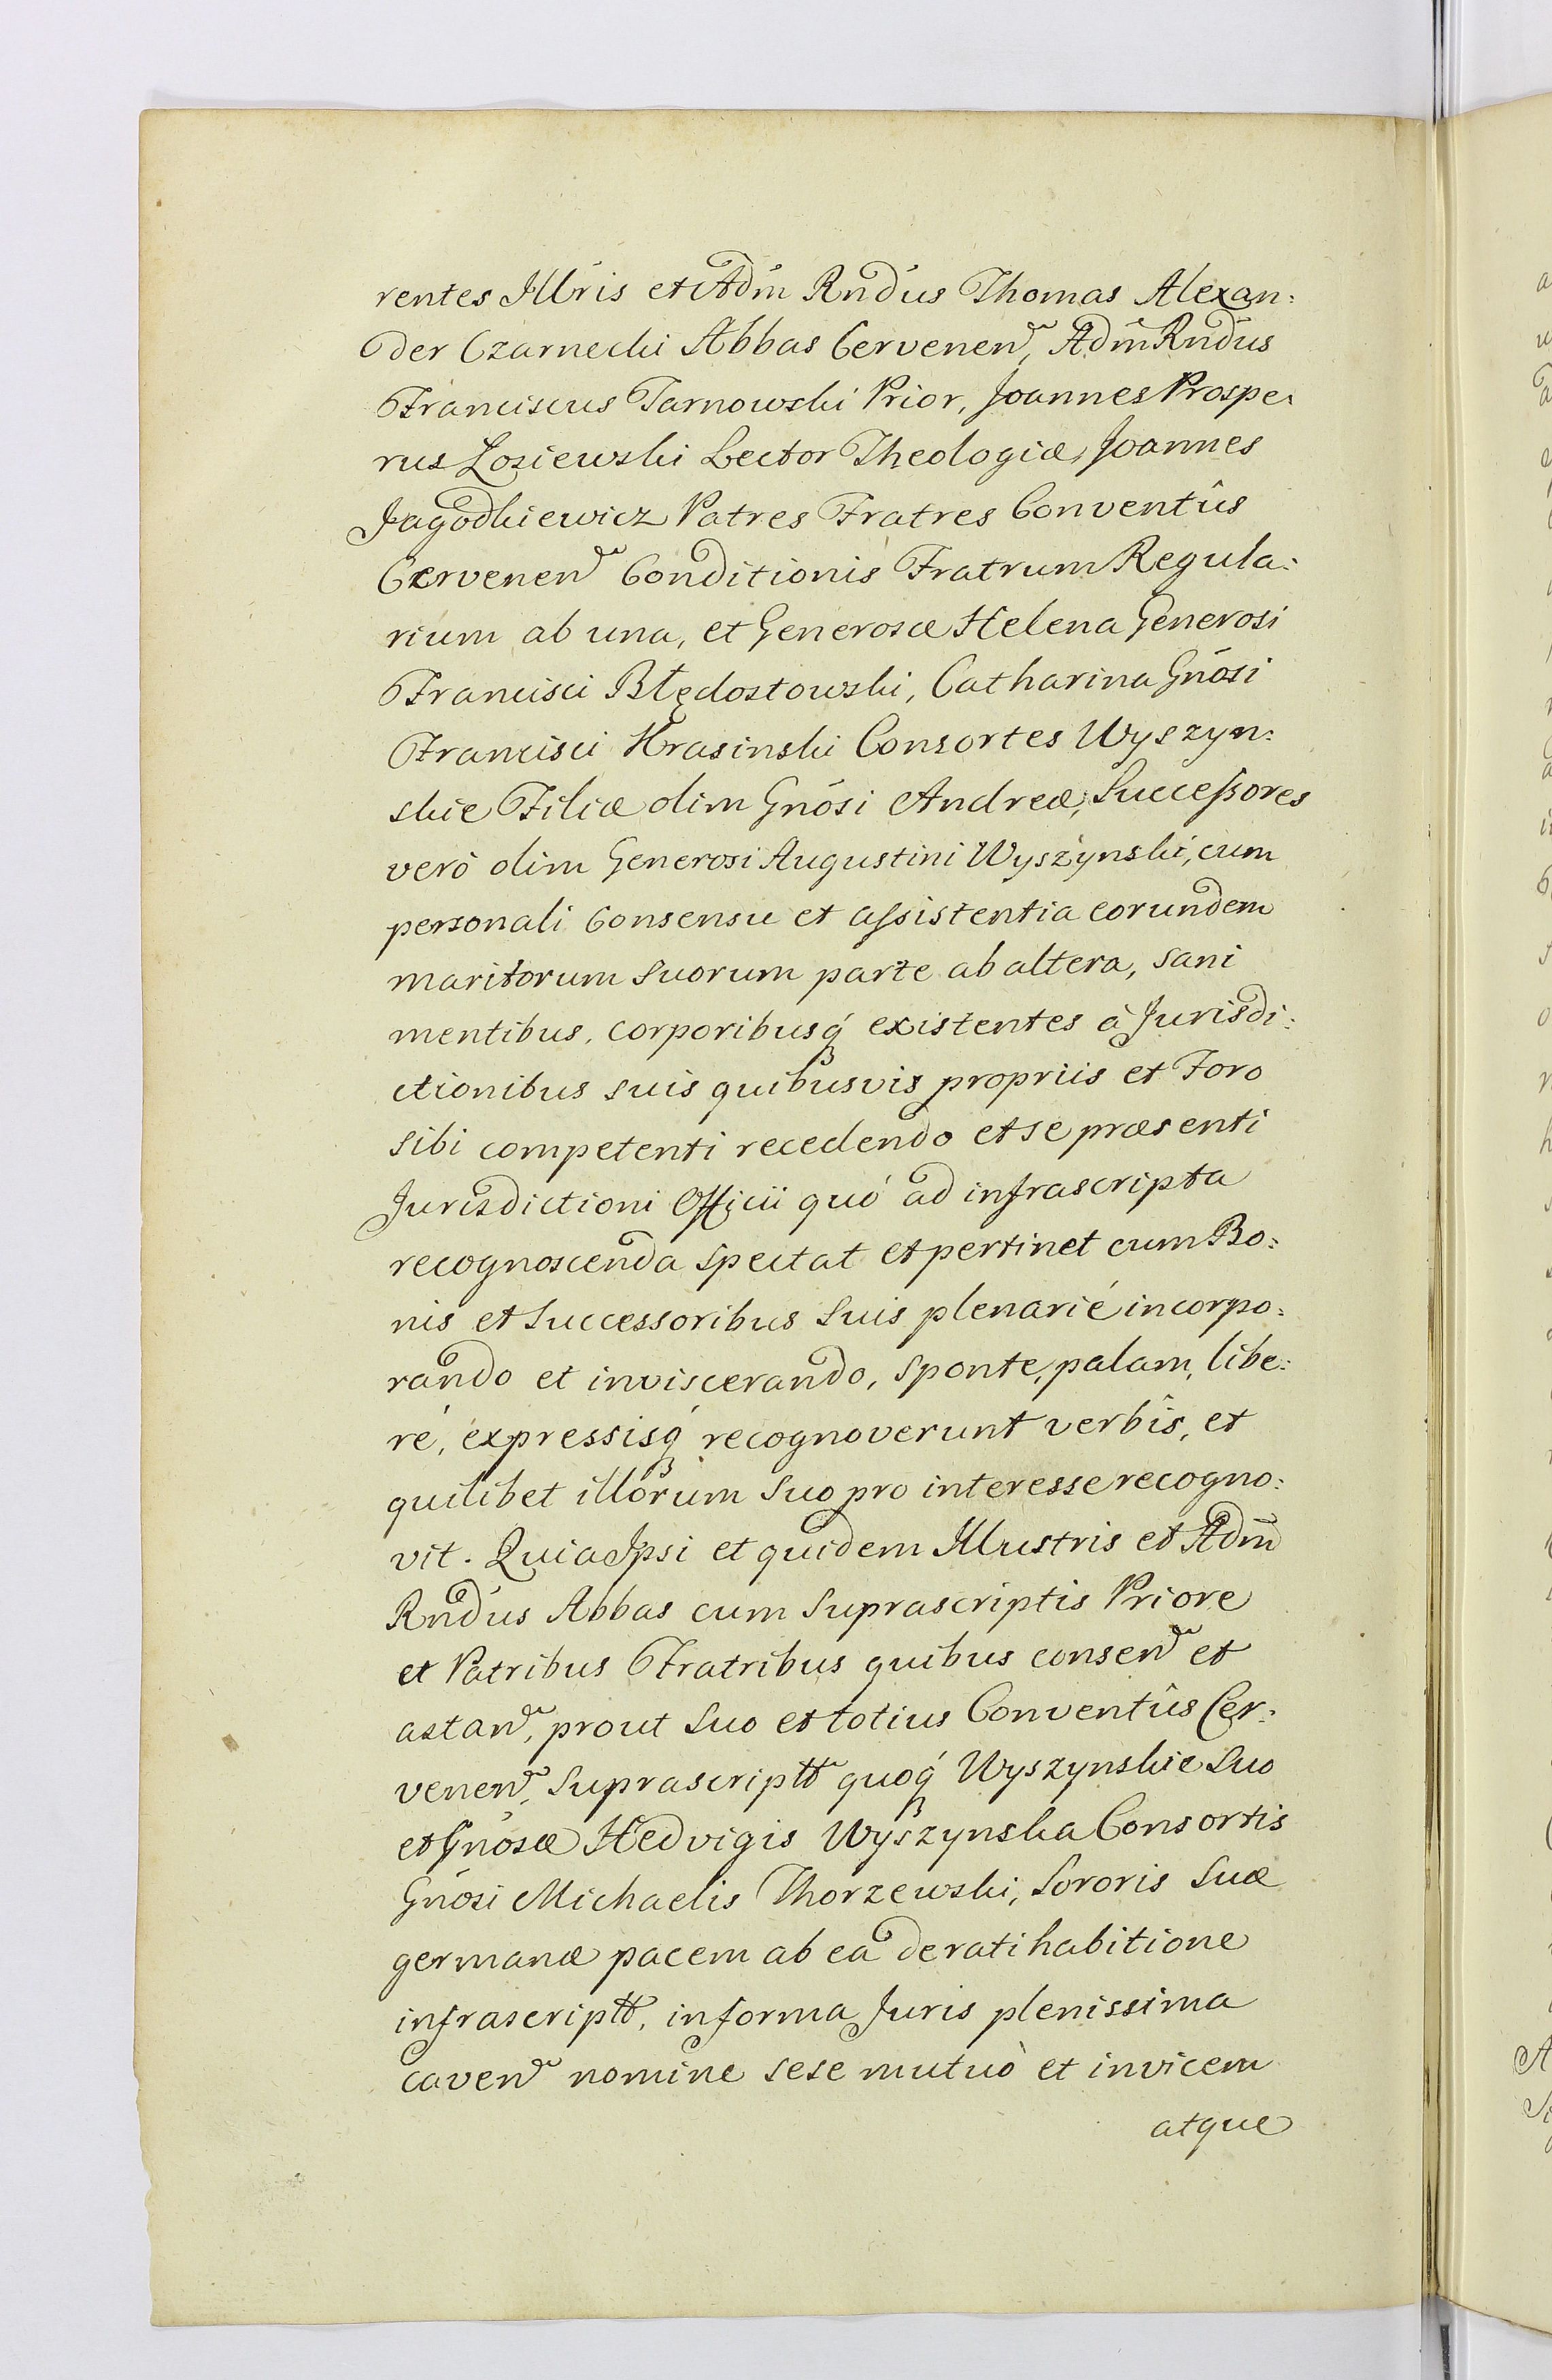 rentes Illr̃is et Adm̃ Rñdus Thomas Alexan:
der Czarnecki Abbas Cervenen̄, Adm̃ Rñdus
Franciscus Tarnowski Prior, Joannes Prospe:
rus Łosiewski Lector Theologiæ, Joannes
Jagodkiewicz Patres Fratres Conventûs
Cervenen̄ Conditionis Fratrum Regula:
rium ab una, et Generosæ Helena Generosi
Francisci Błędostowski, Catharina Gnõsi
Francisci Krasinski Consortes Wyszyn:
skie Filiæ olim Gnõsi Andreæ, Successores
verò olim Generosi Augustini Wyszynski, cum
personali Consensu et assistentia eorundem
maritorum suorum parte ab altera, sani
mentibus, corporibusq́ existentes à Jurisdi:
ctionibus suis quibusvis propriis et Foro
sibi competenti recedendo et se præsenti
Jurisdictioni Officii quó ad infrascripta
recognoscenda spectat et pertinet cum Bo:
nis et Successoribus suis plenarié incorpo:
rando et inviscerando, sponte, palam, libe:
ré, expressisq́ recognoverunt verbîs, et
quilibet illorum suo pro interesse recogno:
vit. Quia Ipsi et quidem Illustris et Adm̃
Rñdus Abbas cum suprascriptis Priore
et Patribus Fratribus quibus consen̄ et
astan̄, prout suo et totius Conventûs Cer:
venen̄, suprascriptt̄ quoq́ Wyszynskie suo
et Gnõsæ Hedvigis Wyszynska Consortis
Gnõsi Michaelis Thorzewski, Sororis suæ
germanæ pacem ab ea de ratihabitione
infrascriptt̄, in forma Juris plenissima
caven̄ nomine sese mutuò et invicem
atque